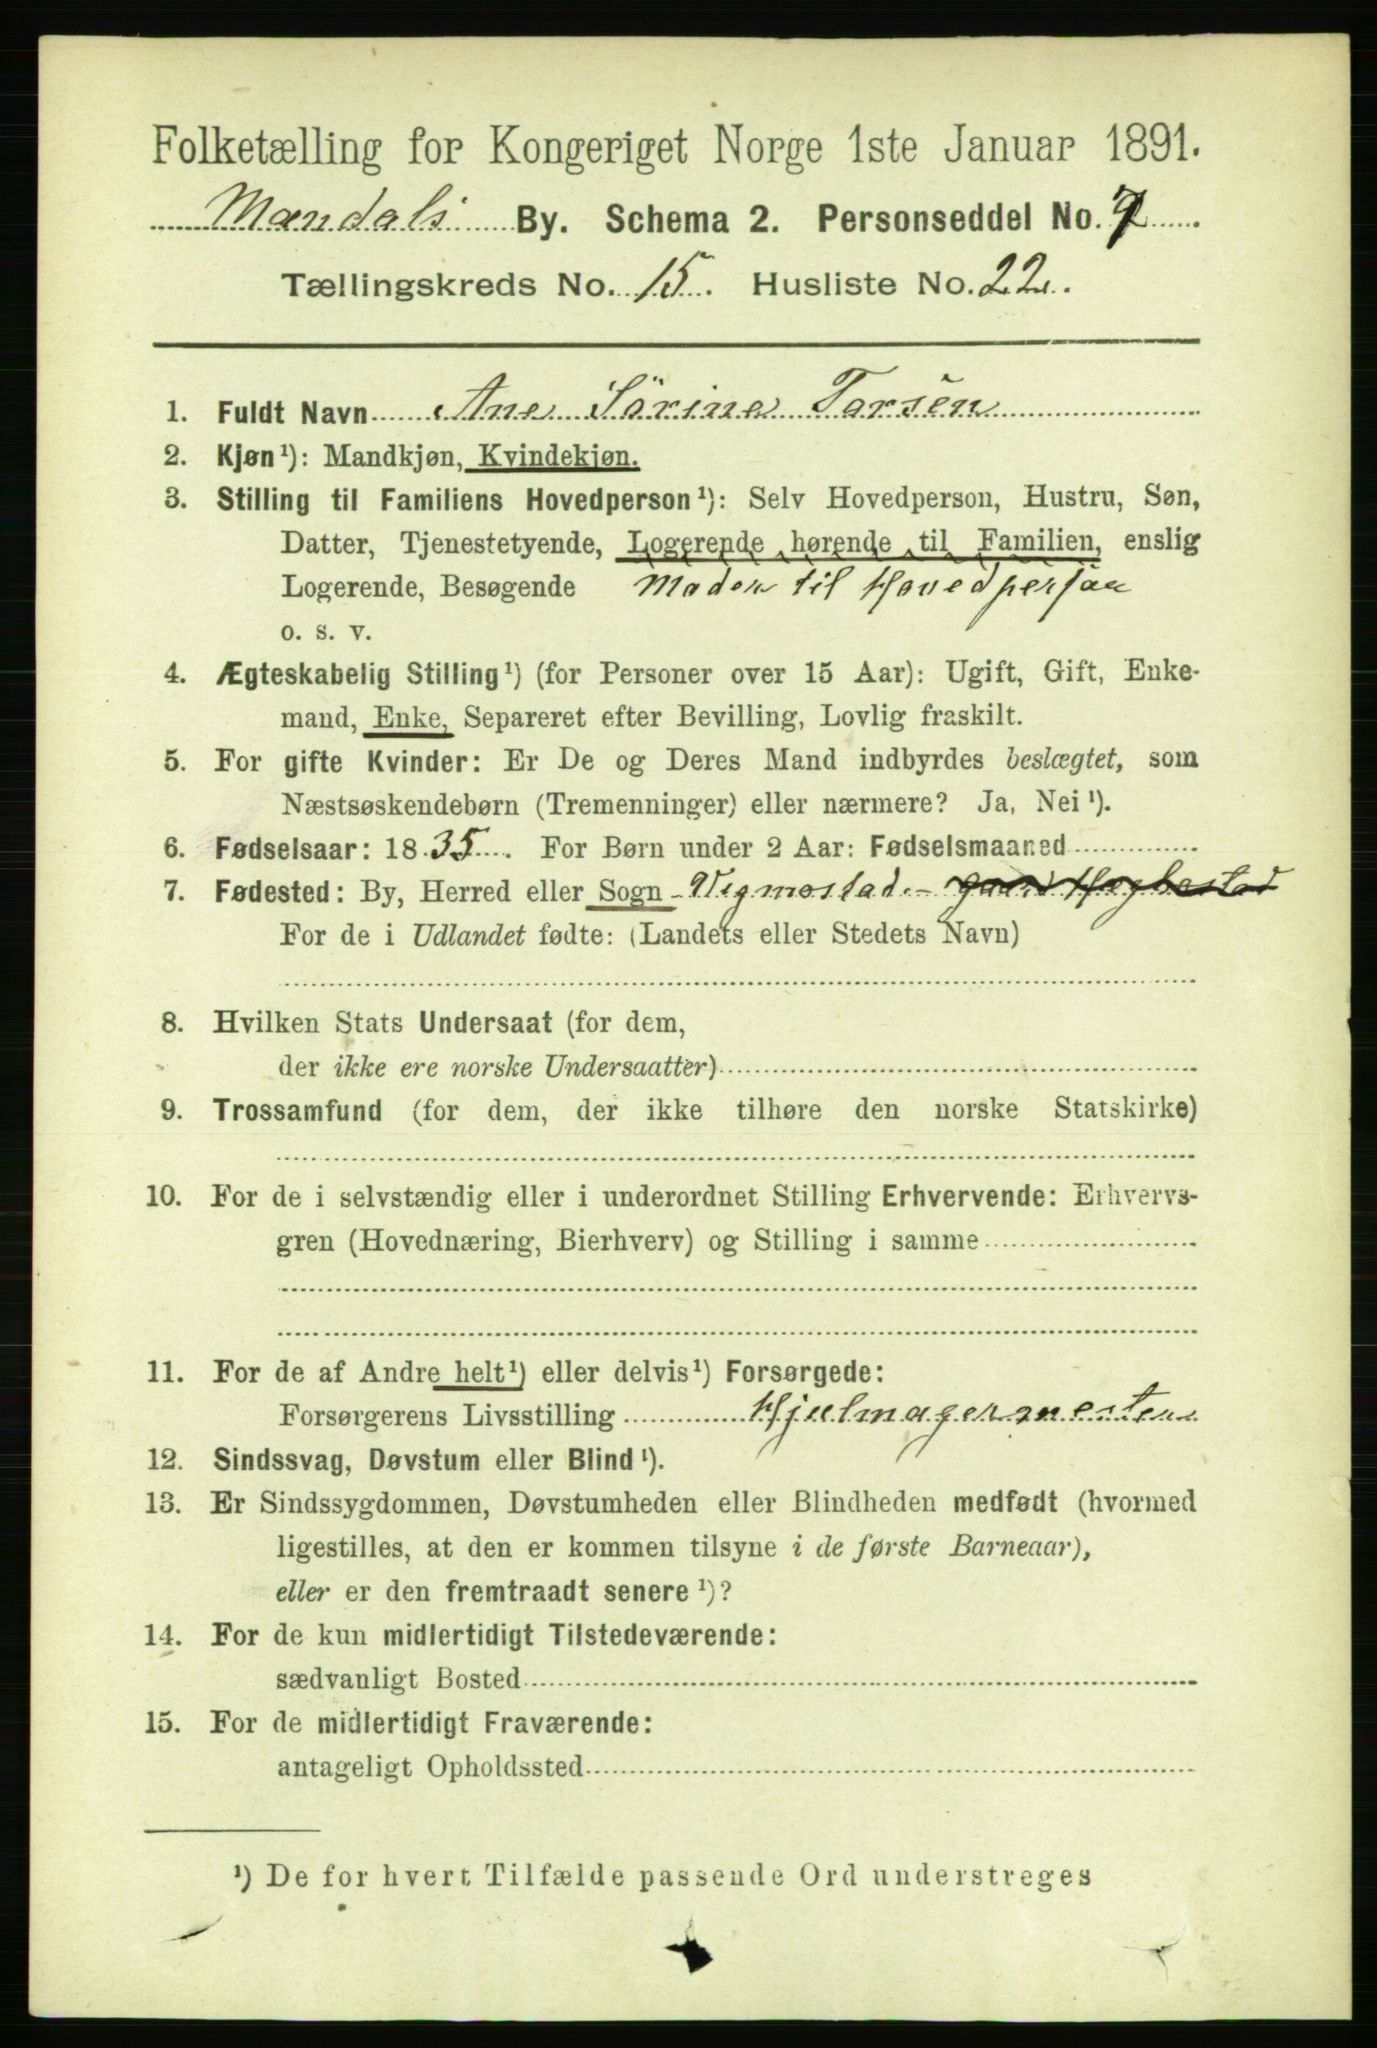 Folketælling for Kongeriget Norge 1ste Januar 1891.
Mandals By. Schema 2. Personseddel No. 7
Tællingskreds No. 15. Husliste No. 22.
1. Fuldt Navn Ane Sörine Torsen
2. Kjøn¹): Mandkjøn, Kvindekjøn.
3. Stilling til Familiens Hovedperson¹): Selv Hovedperson, Hustru, Søn,
Datter, Tjenestetyende, Logerende hørende til Familien, enslig
Logerende, Besøgende Moder til Hovedperson
o. s. v.
4. Ægteskabelig Stilling¹) (for Personer over 15 Aar): Ugift, Gift, Enke-
mand, Enke, Separeret efter Bevilling, Lovlig fraskilt.
5. For gifte Kvinder: Er De og Deres Mand indbyrdes beslægtet, som
Næstsøskendebørn (Tremenninger) eller nærmere? Ja, Nei¹).
6. Fødselsaar: 1835. For Børn under 2 Aar: Fødselsmaaned
7. Fødested: By, Herred eller Sogn - Vigmostad. - gaard Høgbostad
For de i Udlandet fødte: (Landets eller Stedets Navn)
8. Hvilken Stats Undersaat (for dem,
der ikke ere norske Undersaatter)
9. Trossamfund (for dem, der ikke tilhøre den norske Statskirke)
10. For de i selvstændig eller i underordnet Stilling Erhvervende: Erhvervs-
gren (Hovednæring, Bierhverv) og Stilling i samme
11. For de af Andre helt¹) eller delvis¹) Forsørgede:
Forsørgerens Livsstilling Hjulmagermester
12. Sindssvag, Døvstum eller Blind¹).
13. Er Sindssygdommen, Døvstumheden eller Blindheden medfødt (hvormed
ligestilles, at den er kommen tilsyne i de første Barneaar),
eller er den fremtraadt senere¹)?
14. For de kun midlertidigt Tilstedeværende:
sædvanligt Bosted
15. For de midlertidigt Fraværende:
antageligt Opholdssted
¹) De for hvert Tilfælde passende Ord understreges